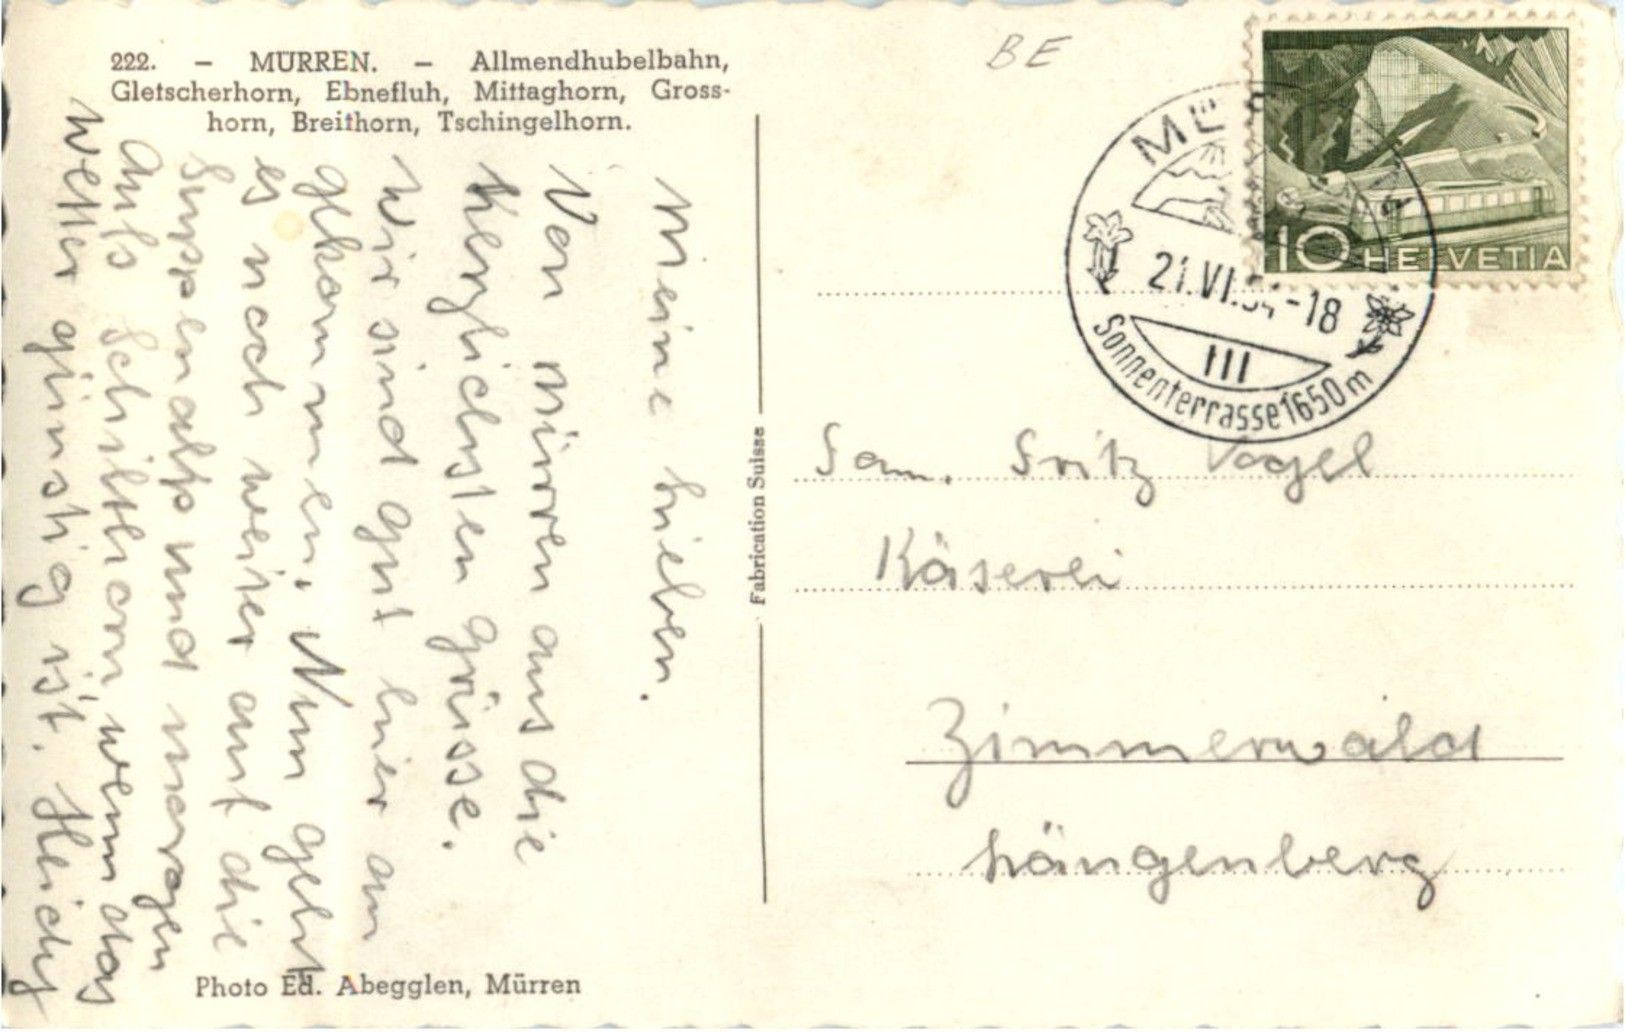 222. - MÜRREN. - Allmendhubelbahn,
Gletscherhorn, Ebnefluh, Mittaghorn, Gross-
horn, Breithorn, Tschingelhorn.
Meine Lieben.
Von Mürren aus die
herzlichsten Grüsse.
Wir sind gut hier an
gekommen. Nun geht
es noch weiter auf die
Suppenalp und morgen
aufs Schilthorn, wenn das
Wetter günstig ist. Heidy
Photo Ed. Abegglen, Mürren
Fabrication Suisse
BE
10 HELVETIA
21.VI.54-18
III
Sonnenterrasse 1650 m
Fam. Fritz Vogel
Käserei
Zimmerwald
Längenberg